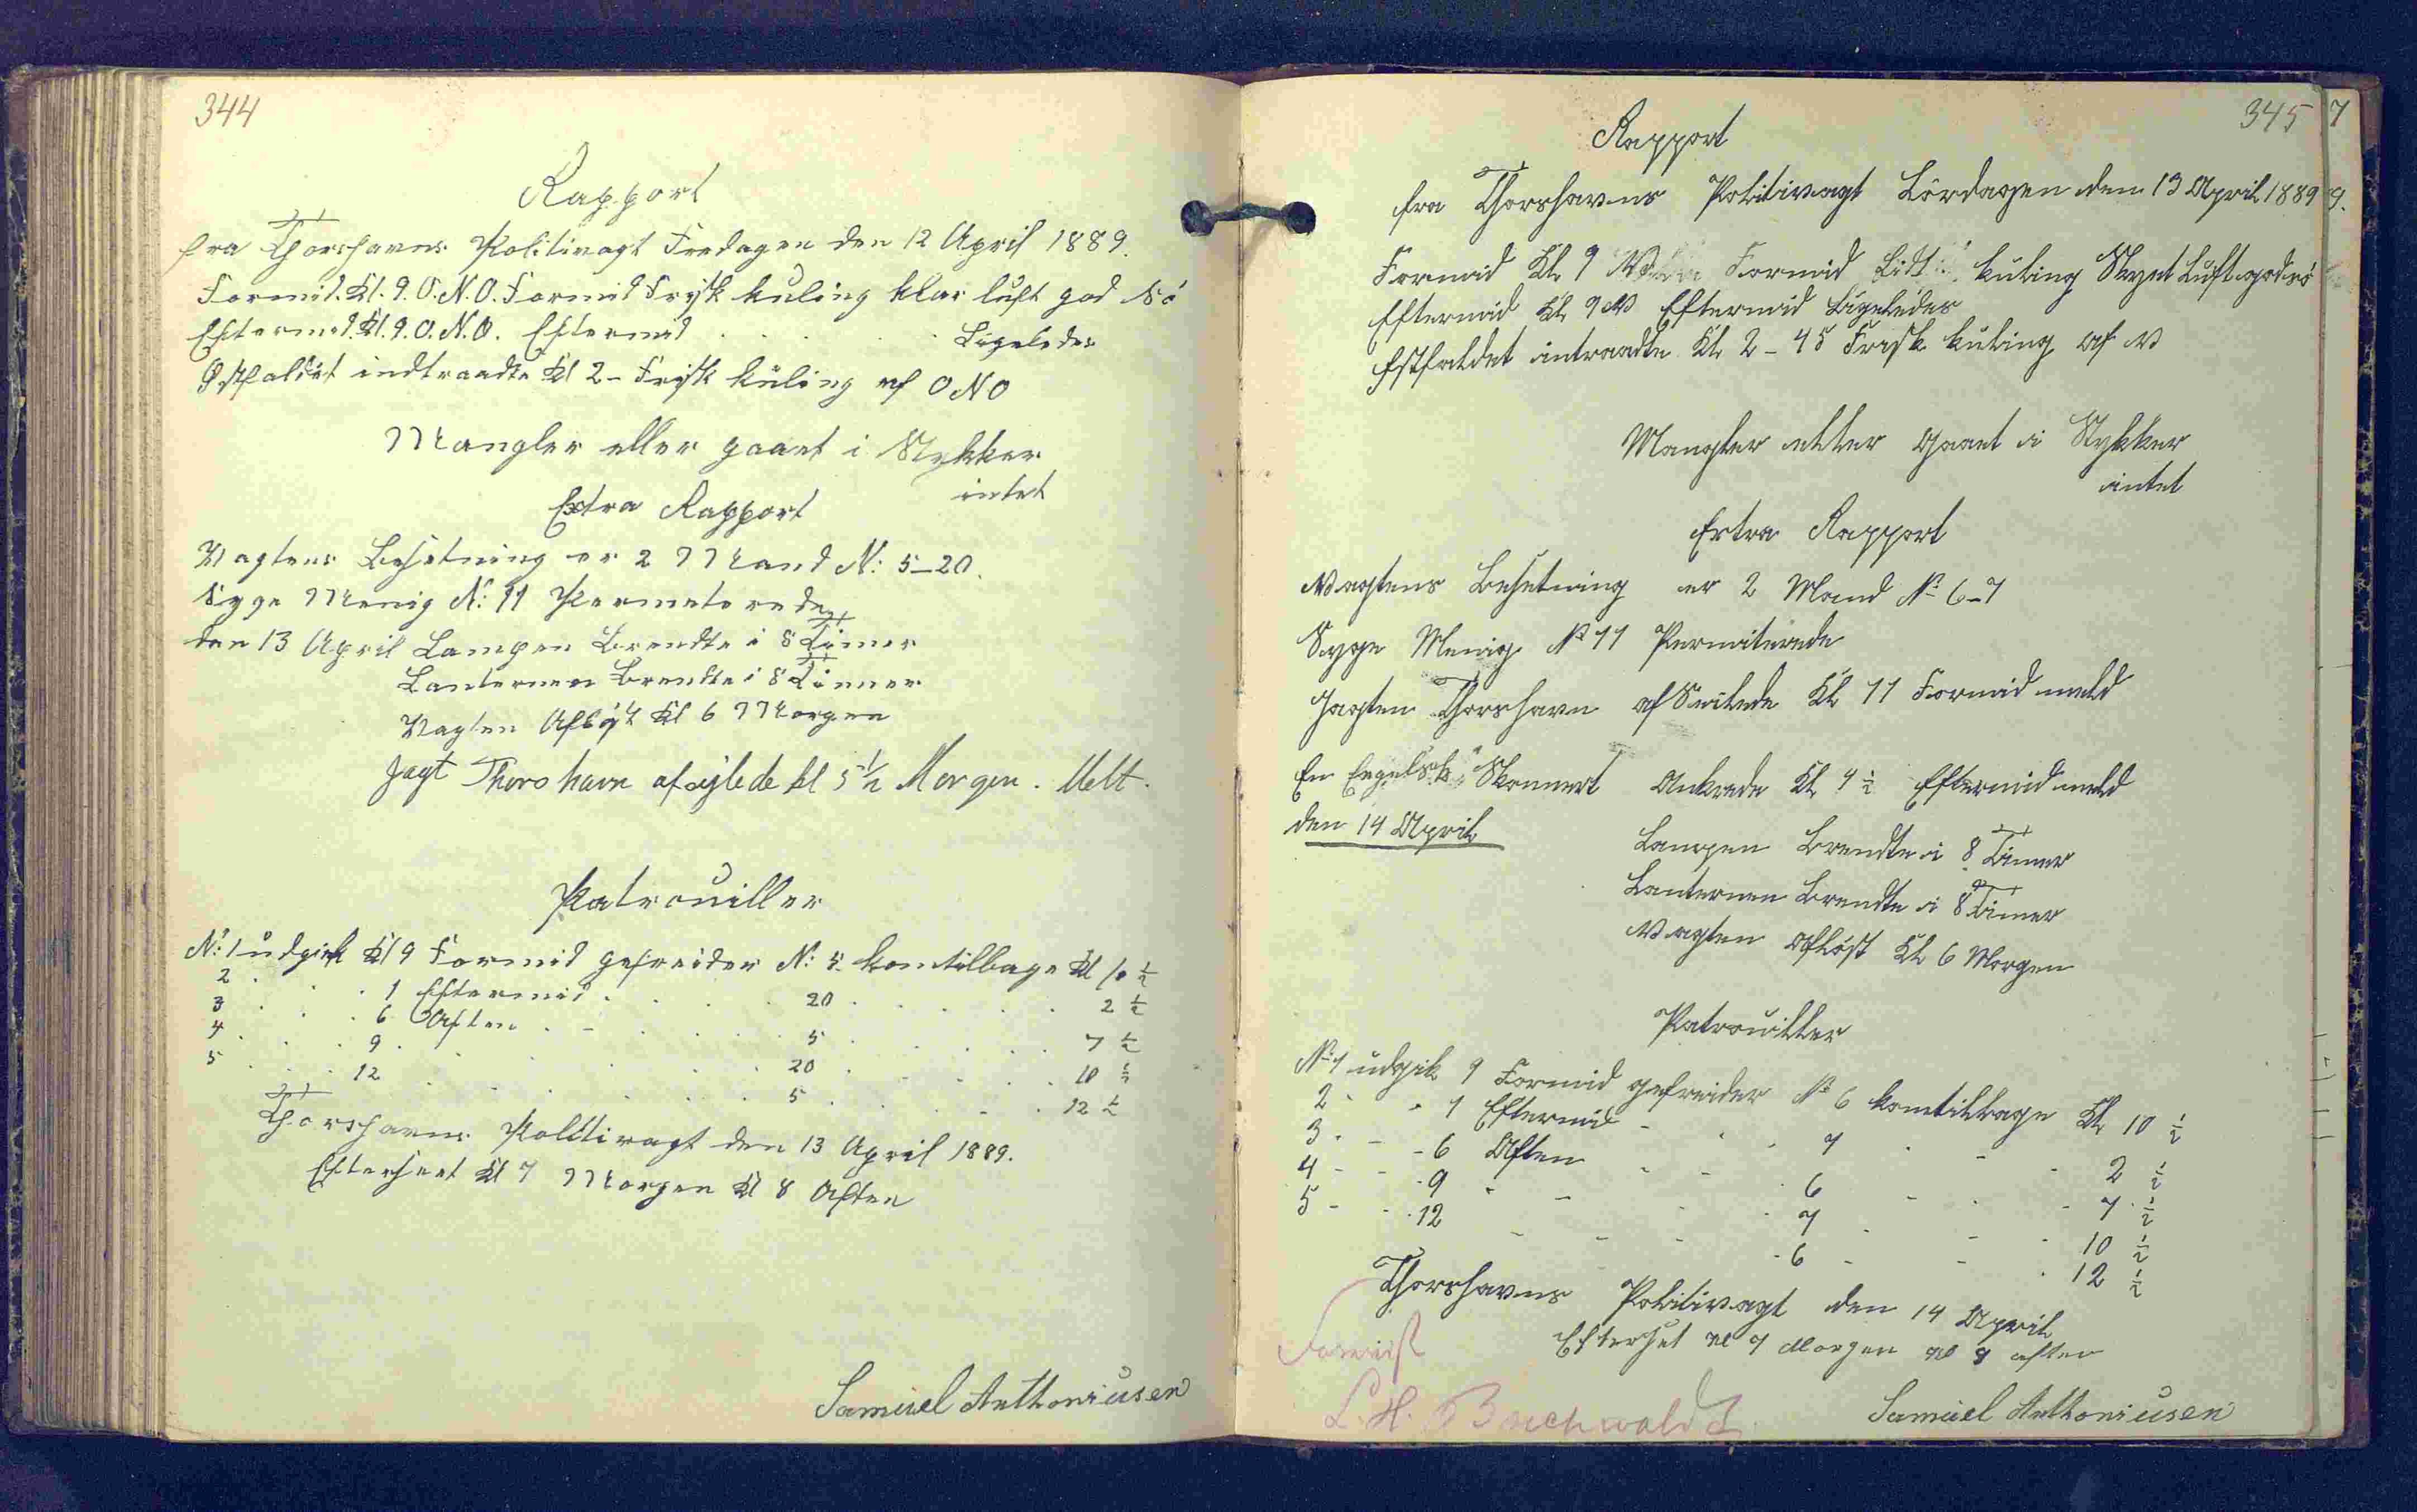 344
Rapport
fra Thorshavns Politivagt Fredagen den 12 April 1889.
Formid. Kl. 9. O.N.O. Formid Frisk kuling klar luft god Sö
Eftermid. Kl. 9. O.N.O. Eftermid . . . . Ligeledes
Østfaldet indtraadte Kl 2 - Frisk kuling af ONO
Mangler eller gaaet i Stykker
intet
Extra Rapport
Vagtens Besetning er 2 Mand N: 5-20.
Syge Menig N: 11 Permeterede
den 13 April Lampen Brendte i 8 Timer
Lanternen Brendte i 8 Timer
Vagten Afløst Kl 6 Morgen
Jagt Thorshavn afsejlede kl 5 1/2 Morgen. Melt.
Patrouiller
N: 1 udgik Kl 9 Formid gefreider N: 5 kom tilbage Kl 10 1/2
2 . . . 1 Eftermid . . . 20 . . . 2 1/2
3 . . . 6 Aften . . . 5 . . . 7 1/2
4 . . . 9 . . . 20 . . . 10 1/2
5 . . . 12 . . . 5 . . . 12 1/2
Thorshavns Politivagt den 13 April 1889.
Efterseet Kl 7 Morgen Kl 8 Aften
Samuel Anthoniusen
345
7
Rapport
fra Thorshavns Politivagt Lördagen den 13 April 1889
9.
Formid Kl 9 Formid Lidt kuling Skyet Luft god sö
Eftermid Kl 9 V Eftermid Ligeledes
Estfaldet intraadte Kl 2 - 45 Frisk kuling af V
Mangler eller Gaaet i Stykker
intet
Extra Rapport
Vagtens Besetning er 2 Mand N: 6-7
Syge Menig N: 11 Permiterede
Jagten Thorshavn afSeilede Kl 11 Formid meld
En Engelsk Skonnert Ankrede Kl 4 1/2 Eftermid meld
den 14 April
Lampen Brendte i 8 Timer
Lanternen Brendte i 8 Timer
Vagten Afløst Kl 6 Morgen
Patrouiller
N: 1 udgik 9 Formid gefreider N: 6 kom tilbage Kl 10 1/2
2 . . 1 Eftermid - . . 7 . - . 2 1/2
3 . - - 6 Aften - - . 6 - . - 7 1/2
4 - - . 9 . - - . 7 . - . 10 1/2
5 - . . 12 - - - . 6 . - . 12 1/2
Thorshavns Politivagt den 14 April
Efterset Kl 7 Morgen Kl 8 aften
Forevist
L. H. Buchwaldt
Samuel Anthoniusen